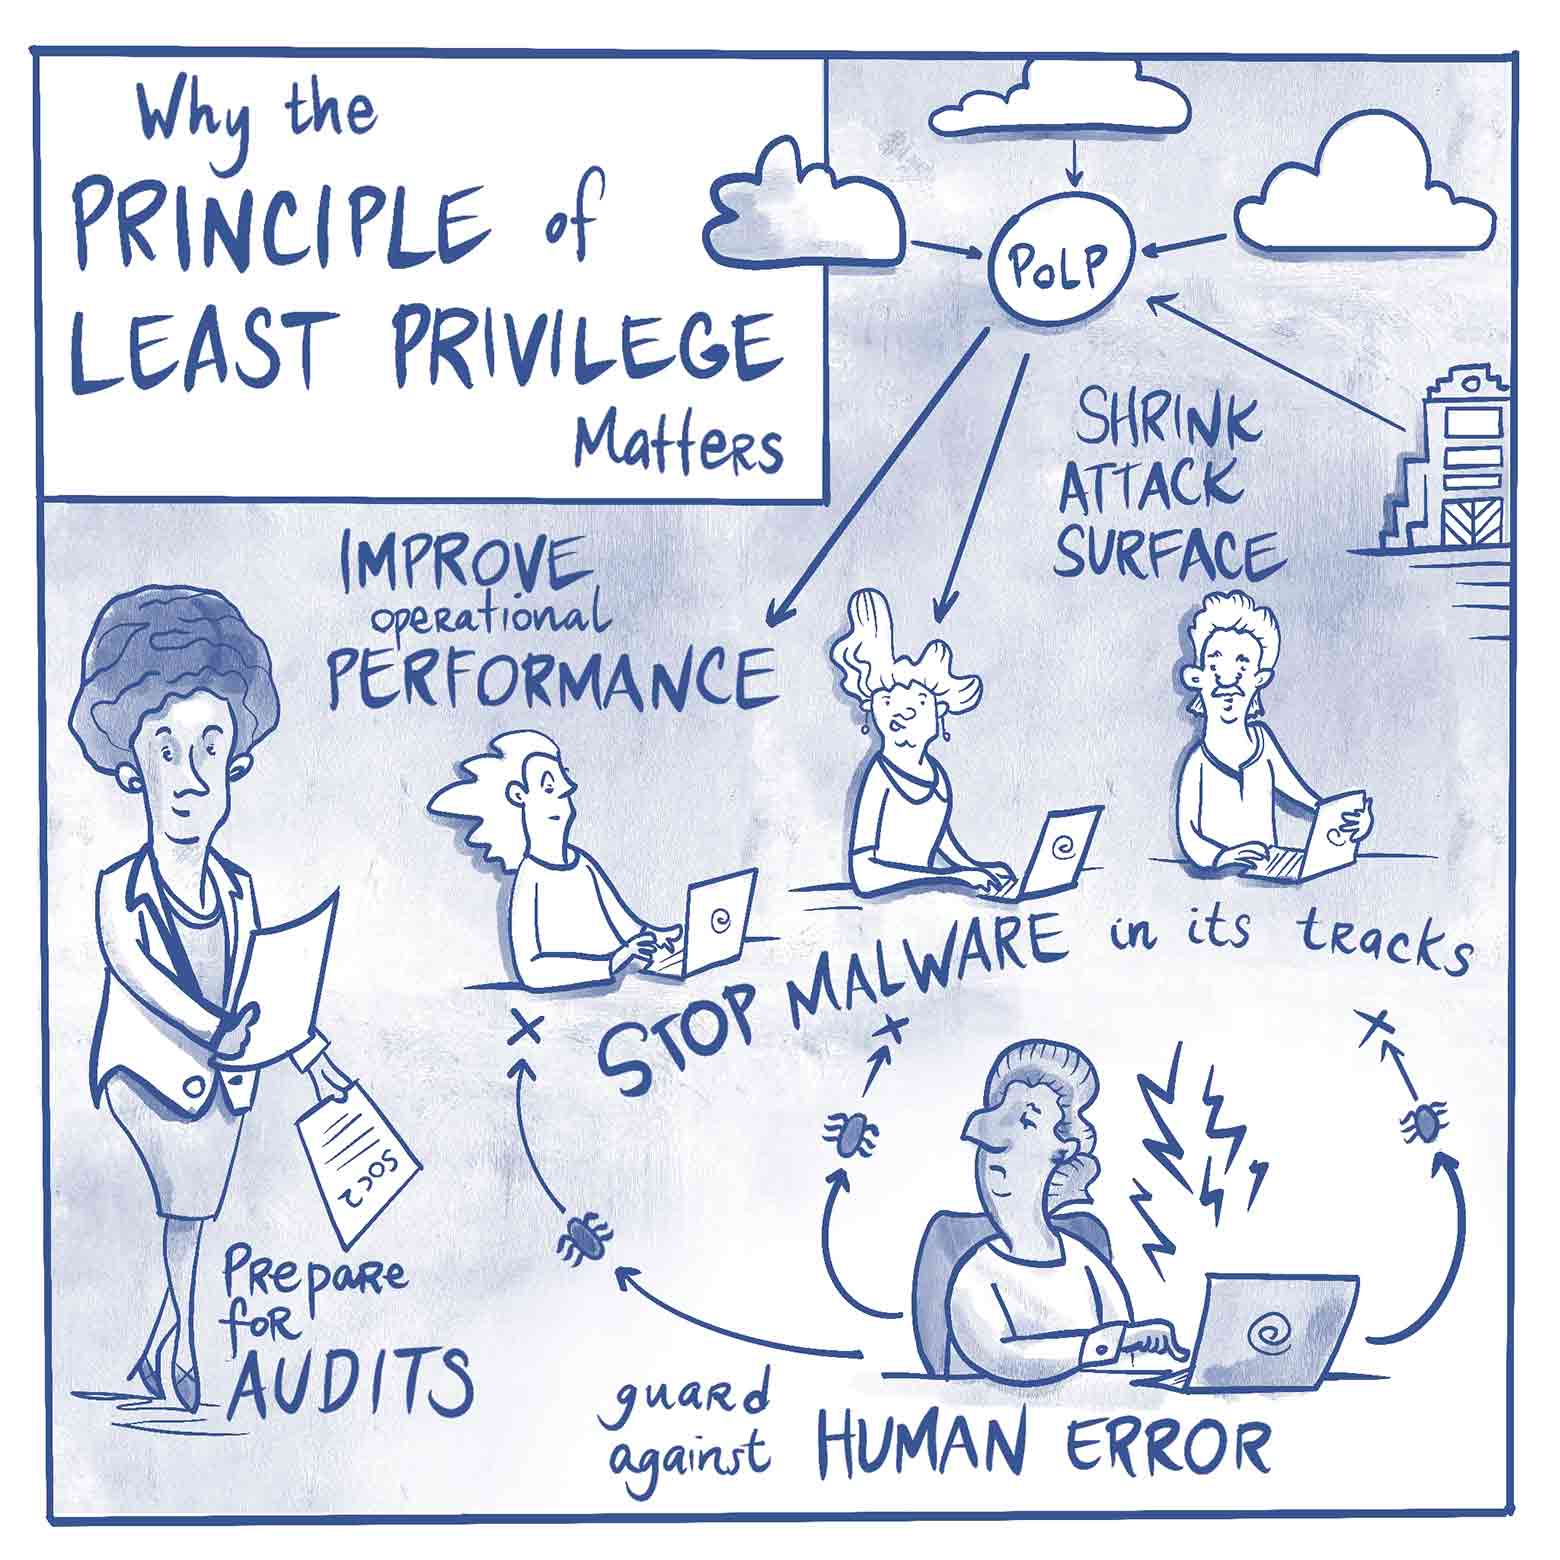 Why the
PRINCIPLE of
LEAST PRIVILEGE
Matters
PoLP
SHRINK
ATTACK
SURFACE
IMPROVE
operational
PERFORMANCE
STOP MALWARE in its tracks
SOC2
Prepare
for
AUDITS
guard
against
HUMAN ERROR